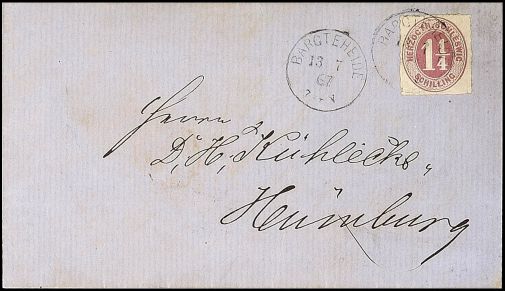 BARGTEHEIDE
13 7
67
BARGT
HERZOGTH. SCHLESWIG
1 1/4
SCHILLING
Herrn
D, H, Kühlecke,
Hamburg